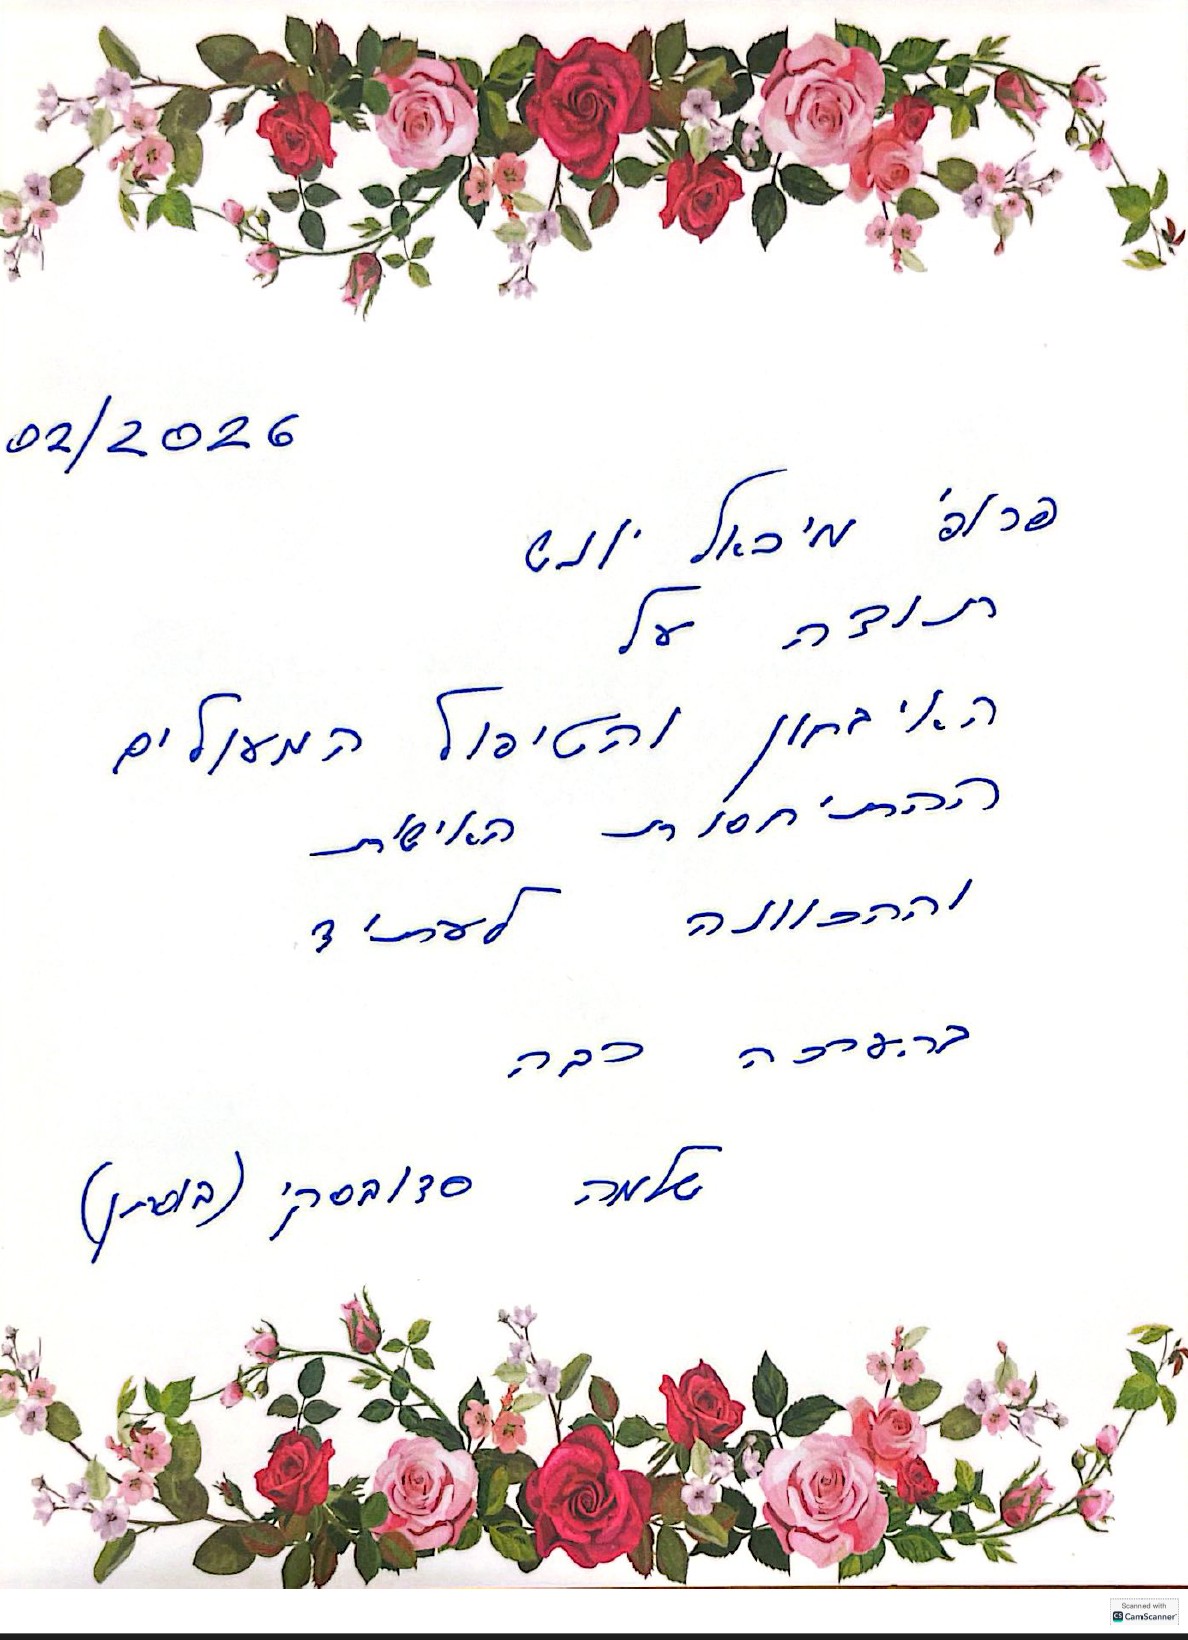 02/2026
פרופ' מיכאל יונש
תודה על
האיבחון והטיפול המעולים
ההתיחסות האישית
וההכוונה לעתיד
בהערכה רבה
שלמה סדובסקי (בוסתן)
Scanned with
CS CamScanner